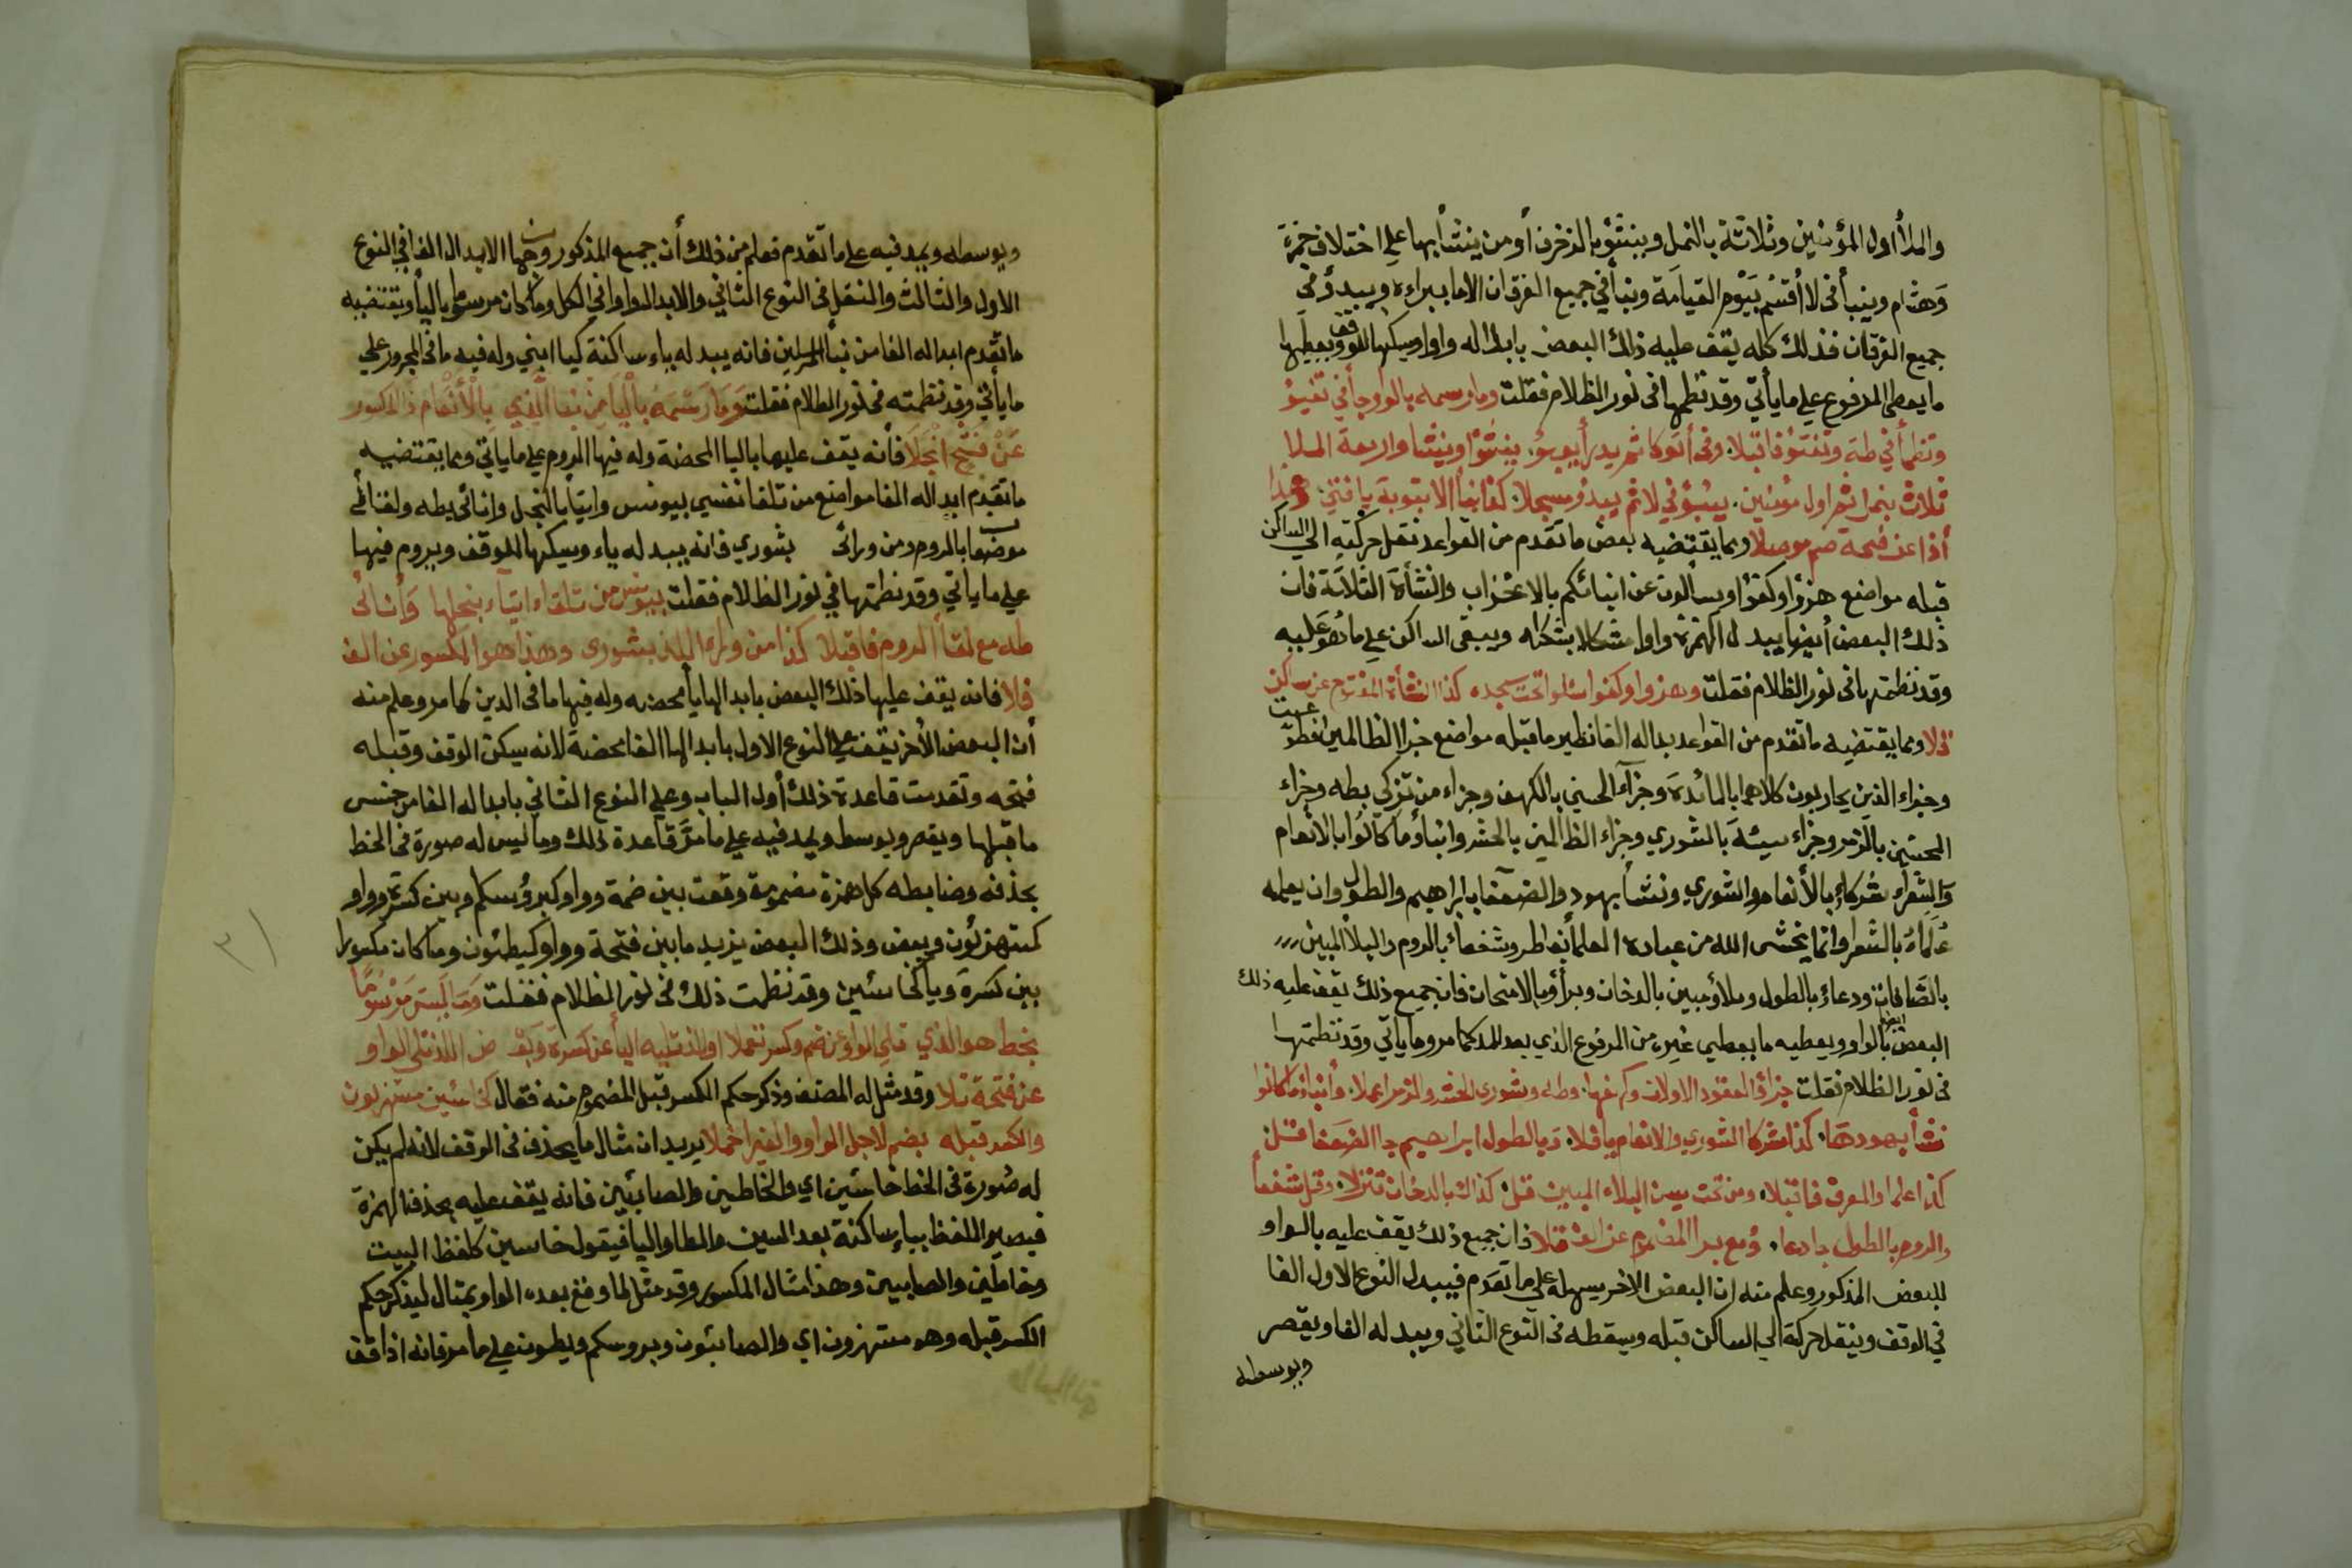 والملأ اول المؤمنين وثلاثة بالنمل وينبؤ بالزخرف أو من ينشأ بها على اختلاف حمزة
وهشام وينبأ فى لا أقسم بيوم القيامة ونبأ في جميع القران الا ما ببراءة ويبدؤ في
جميع القران فذلك كله يقف عليه ذلك البعض بابداله واوا ويسكنها للوقف ويعطيها
ما يعطى المرفوع على ما يأتي وقد نظمتها فى نور الظلام فقلت وما رسمه بالواو جا في تفيؤ
وتظمأ في طه وتفتؤ فاقبلا وفى أتوكا ثم يدرأ يعبؤ ينشؤا وينشا واربعة الملا
ثلاث بنمل ثم اول مؤمنين ينبؤ في لا ثم يبدؤ مسجلا كذا نبأ الا بتوبة يا فتى وهذا
أذا عن فتحة ضم موصلا ومما يقتضيه بعض ما تقدم من القواعد نقل حركته الى الساكن
قبله مواضع هزؤا وكفؤا ويسألون عن انبائكم بالاحزاب والنشأة الثلاثة فان
ذلك البعض أيضا يبدل الهمزة واوا مشكلا بشكله ويبقى الساكن على ما هو عليه
وقد نظمتها فى نور الظلام فقلت وهزوا وكفوا اسئلوا تحت سجده كذا النشأة المفتوح عن ساكن
ومما يقتضيه ما تقدم من القواعد بداله الفا نظير ما قبله مواضع جزاؤا الظالمين
وجزاء الذين يحاربون كلاهما بالمائدة وجزآء الحسنى بالكهف وجزاء من تزكى بطه وجزاء
المحسنين بالزمر وجزاء سيئة بالشورى وجزاء الظالمين بالحشر وانباؤ ما كانوا بالانعام
والشعراء شركاء بالأنعام والشورى ونشأ بهود والضعفا بابراهيم والطول وان يعلمه
علماء بالشعرا وانما يخشى الله من عباده العلمأ بفاطر وشفعاء بالروم والبلأ المبين
بالصافات ودعاء بالطول وبلاؤ مبين بالدخان وبرآؤ بالامتحان فان جميع ذلك يقف عليه ذلك
البعض أيضا بالواو ويعطيه ما يعطى غيره من المرفوع الذي بعد المد كما مر وما يأتي وقد نظمتها
فى نور الظلام فقلت جزاؤ العقود الاولان وكهفها وطه وشورى الحشر والزمر اعملا وأنباؤ ما كانوا
نشأ بهودها كذا شركا الشورى والانعام يا فلا وبالطول ابراهيم جا الضعفا فتلن
كذا علما والعرف فاقبلا ومن تحت يس البلاء المبين قل كذاك بالدخان تنزلا وقل شفعأ
والروم بالطول جا دعا ومع برا المضموم عن الف تلا فان جميع ذلك يقف عليه بالواو
للبعض المذكور وعلم منه ان البعض الاخر يسهله على ما تقدم فيبدل النوع الاول الفا
في الوقف وينقل حركة الى الساكن قبله ويسقطه فى النوع الثاني ويبدله الفا ويقصر
ويوسطه
ويوسطه ويمد فيه على ما تقدم فعلم من ذلك أن جميع المذكور وجها الابدال الفا في النوع
الاول والثالث والنقل فى النوع الثاني والابدال واوا في الكل وما كان مرسوما باليأ ويقتضيه
ما تقدم ابداله الفا من نبأ المرسلين فانه يبدله ياء ساكنة كيا ابني وله فيه ما فى المجرور على
ما يأتي وقد نظمته فى نور الظلام فقلت وما رسمه باليا من نبا الذي بالأنعام ذ المكسور
عن فتح انجلا فأنه يقف عليها باليا المحضة وله فيها الروم على ما ياتي ومما يقتضيه
ما تقدم ابداله الفا مواضع من تلقا نفسي بيونس وايتاء بالنحل وانائ بطه ولقائ
موضعا بالروم ومن ورائ بشورى فانه يبدله ياء ويسكنها للوقف ويروم فيها
على ما ياتي وقد نظمتها في نور الظلام فقلت بيونس من تلقاء ايتآء بنحلها وأنائ
طه مع لقأ الروم فاقبلا كذا من وراء اللذ بشورى وهذا هو المكسور عن الف
فلا فانه يقف عليها ذلك البعض بابدالها يأ محضه وله فيها ما فى الدين كما مر وعلم منه
أن البعض الأخر يقف على النوع الاول بابدالها الفا محضة لانه سيكن الوقف وقبله
فتحه وتقدمت قاعدة ذلك أول الباب وعلى النوع الثاني بابداله الفا من جنس
ما قبلها ويقصر ويوسط ويمد فيه على ما مر قاعدة ذلك وما ليس له صورة فى الخط
بحذفه وضابطه كل همزة مضمومة وقعت بين ضمة وواو كبرؤسكم وبين كسرة وواو
كمستهزئون وبعض وذلك البعض يزيد ما بين فتحة وواو كيطئون وما كان مكسورا
بين كسرة ويا كخاسئين وقد نظمت ذلك فى نور الظلام فقلت وما ليس مرسوما
بخط هو الذي تلى الواو عن ضم وكسر تعملا او الذ تليه اليأ عن كسرة وبعض اللذ تلى الواو
عن فتحة تلا وقد مثل له المصنف وذكر حكم الكسر قبل المضموم منه فقال كخاسئين مستهزئون
والكسر قبله بضم لاجل الواو والغير اخملا يريد ان مثال ما يحذف فى الوقف لانه لم يكن
له صورة فى الخط خاسئين اي والخاطئين والصابئين فانه يقف عليه بحذف الهمزة
فيصير اللفظ بياء ساكنة بعد السين والطا واليا فيقول خاسين كلفظ البيت
وخاطين والصابيين وهذا مثال المكسور وقد مثل لما وقع بعده الواو بمثال ليذكر حكم
الكسر قبله وهو مستهزون اي والصابئون وبروسكم ويطون على ما مر فانه اذا وقف